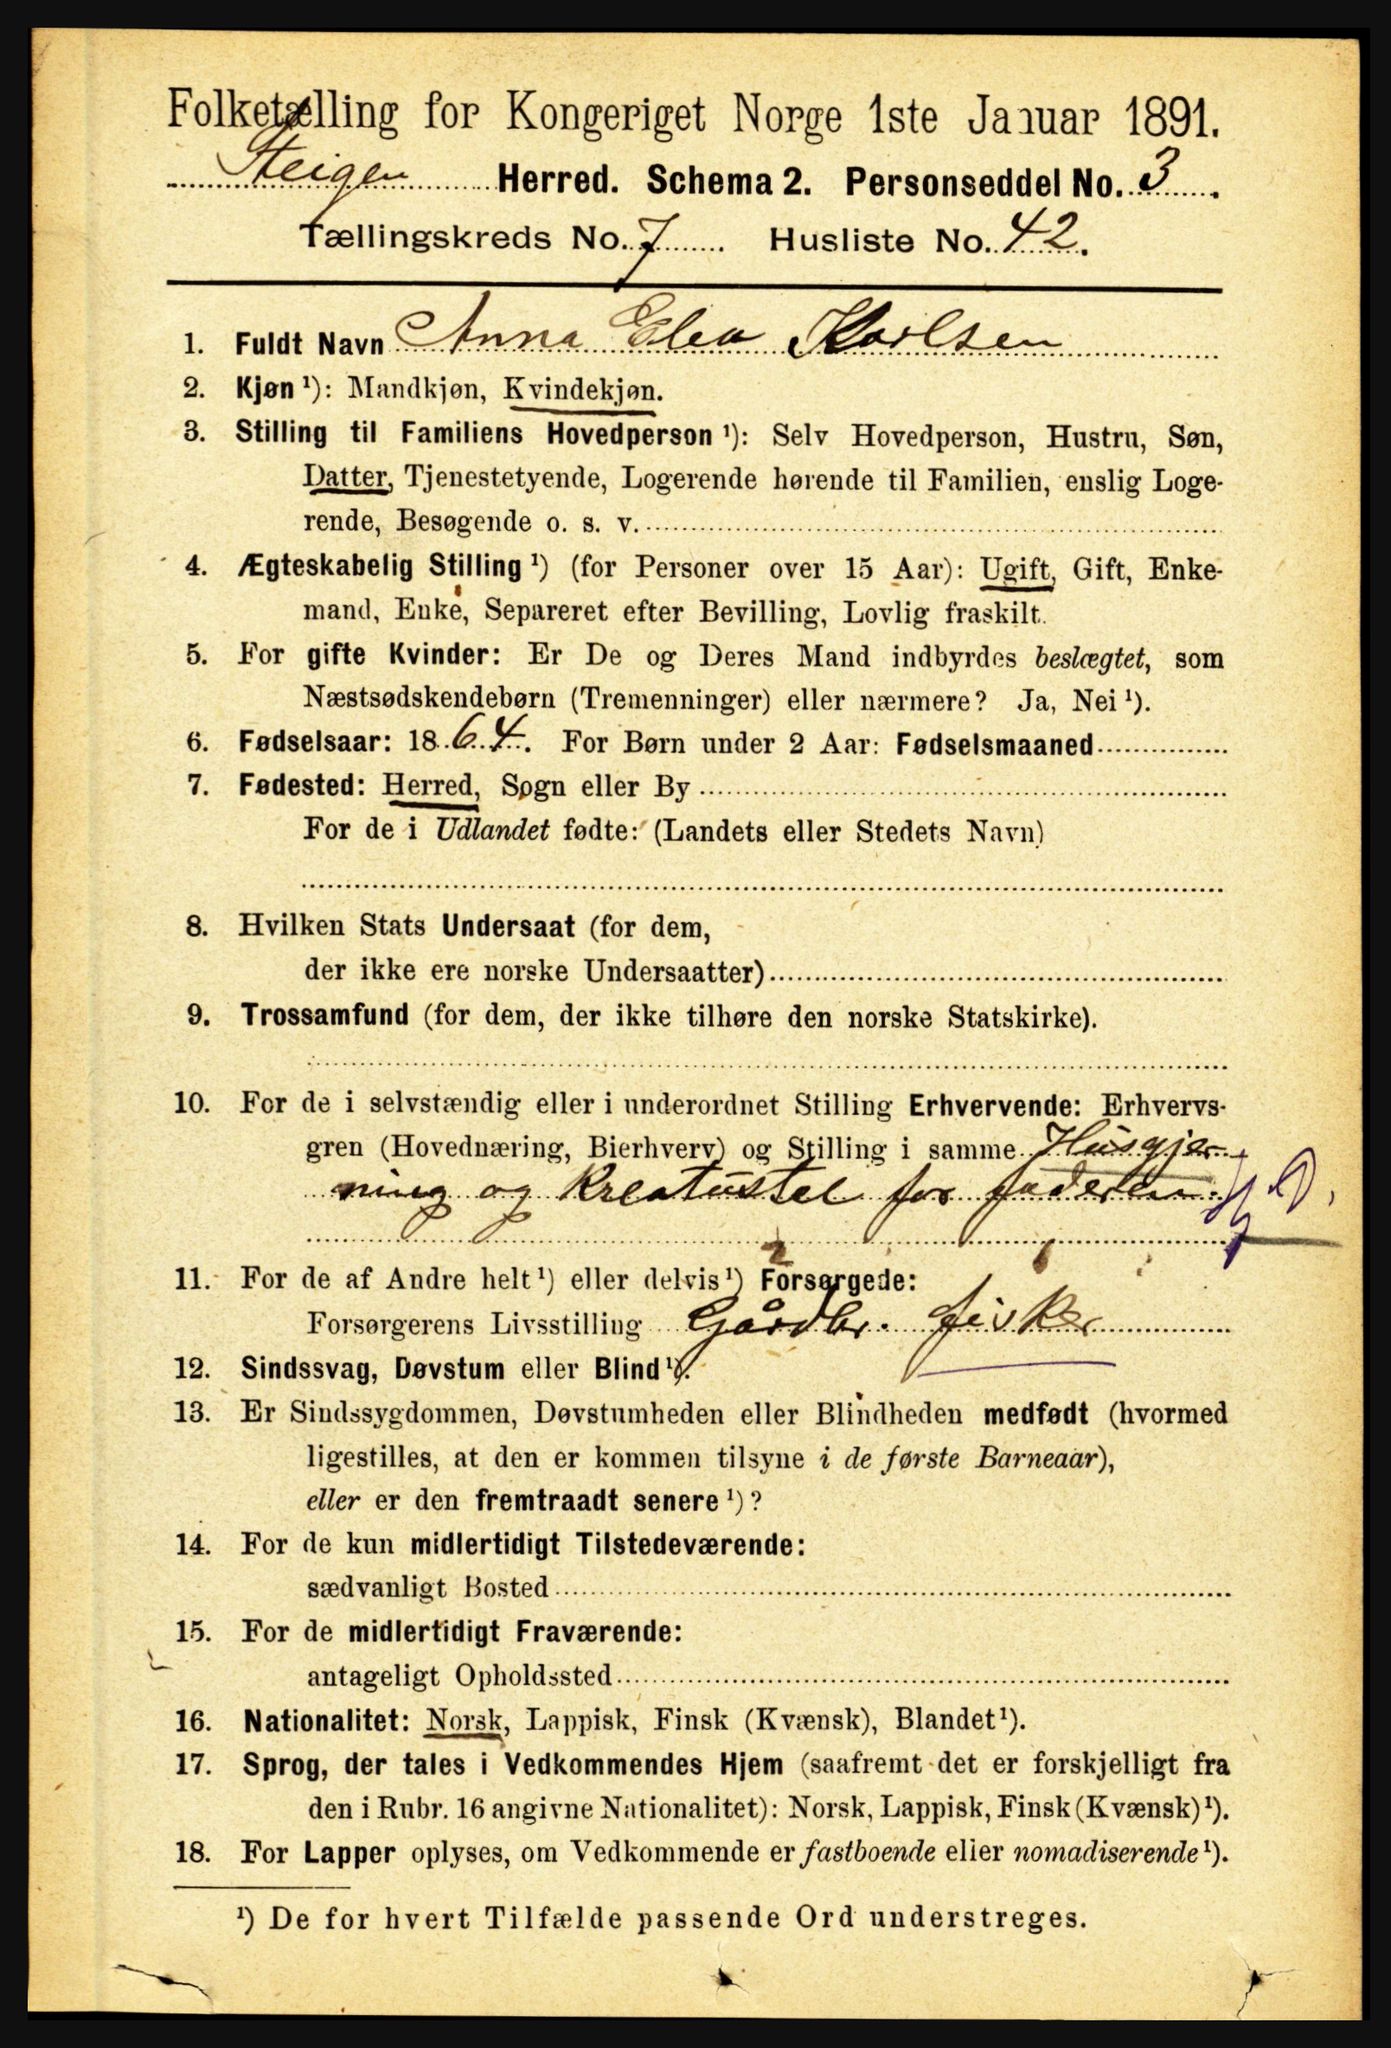 Folketælling for Kongeriget Norge 1ste Januar 1891.
Steigen Herred. Schema 2. Personseddel No. 3.
Tællingskreds No. 7 Husliste No. 42.
1. Fuldt Navn Anna Elea Karlsen
2. Kjøn ¹): Mandkjøn, Kvindekjøn.
3. Stilling til Familiens Hovedperson ¹): Selv Hovedperson, Hustru, Søn,
Datter, Tjenestetyende, Logerende hørende til Familien, enslig Loge-
rende, Besøgende o. s. v.
4. Ægteskabelig Stilling ¹) (for Personer over 15 Aar): Ugift, Gift, Enke-
mand, Enke, Separeret efter Bevilling, Lovlig fraskilt.
5. For gifte Kvinder: Er De og Deres Mand indbyrdes beslægtet, som
Næstsødskendebørn (Tremenninger) eller nærmere? Ja, Nei ¹).
6. Fødselsaar: 1864. For Børn under 2 Aar: Fødselsmaaned
7. Fødested: Herred, Sogn eller By
For de i Udlandet fødte: (Landets eller Stedets Navn)
8. Hvilken Stats Undersaat (for dem,
der ikke ere norske Undersaatter)
9. Trossamfund (for dem, der ikke tilhøre den norske Statskirke).
10. For de i selvstændig eller i underordnet Stilling Erhvervende: Erhvervs-
gren (Hovednæring, Bierhverv) og Stilling i samme Husgjer-
ning og Kreaturstel for faderen.
11. For de af Andre helt ¹) eller delvis ¹) Forsørgede:
Forsørgerens Livsstilling Gårdbr. fisker
12. Sindssvag, Døvstum eller Blind ¹).
13. Er Sindssygdommen, Døvstumheden eller Blindheden medfødt (hvormed
ligestilles, at den er kommen tilsyne i de første Barneaar),
eller er den fremtraadt senere ¹)?
14. For de kun midlertidigt Tilstedeværende:
sædvanligt Bosted
15. For de midlertidigt Fraværende:
antageligt Opholdssted
16. Nationalitet: Norsk, Lappisk, Finsk (Kvænsk), Blandet ¹).
17. Sprog, der tales i Vedkommendes Hjem (saafremt det er forskjelligt fra
den i Rubr. 16 angivne Nationalitet): Norsk, Lappisk, Finsk (Kvænsk) ¹).
18. For Lapper oplyses, om Vedkommende er fastboende eller nomadiserende ¹).
¹) De for hvert Tilfælde passende Ord understreges.